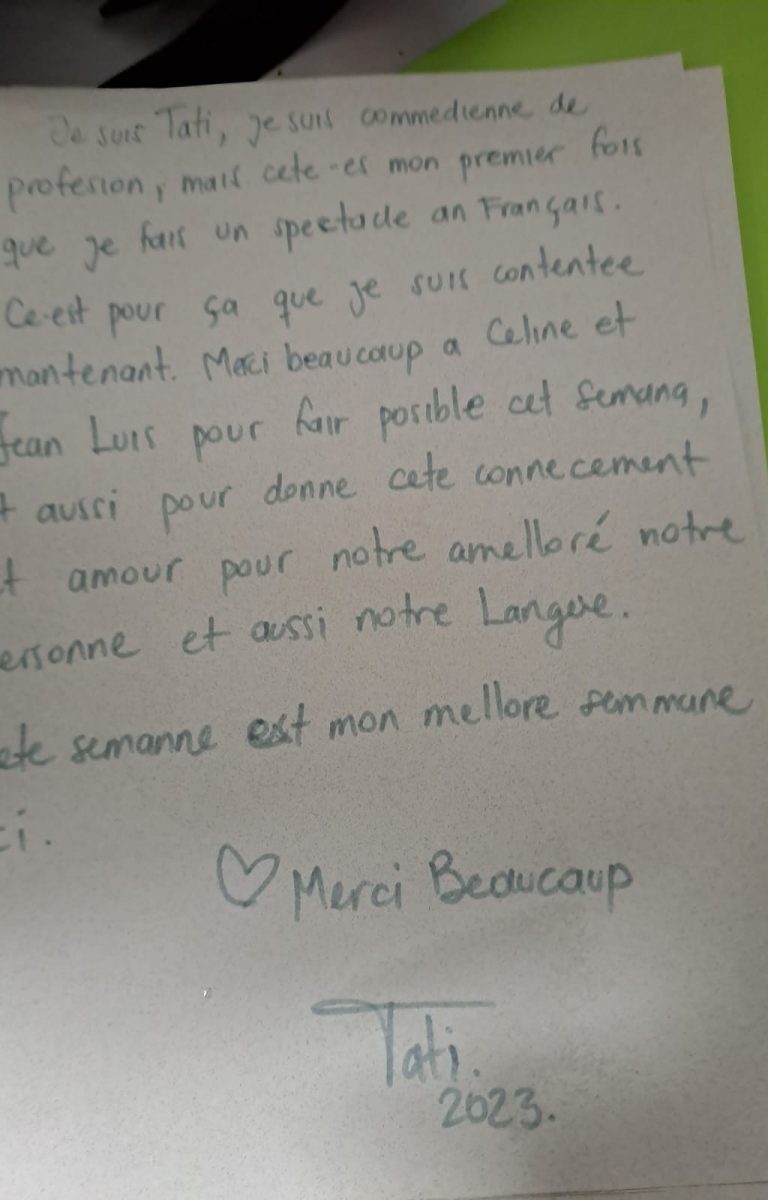 Je suis Tati, je suis commedienne de
profesion, mais cete-es mon premier fois
que je fais un spectacle an Français.
Ce-est pour ça que je suis contentee
mantenant. Merci beaucaup a Celine et
Jean Luis pour fair posible cet semana,
t aussi pour donne cete connecement
t amour pour notre amelloré notre
ersonne et aussi notre Langue.
ete semanne est mon mellore semmane
ci.
♡ Merci Beaucaup
Tati.
2023.